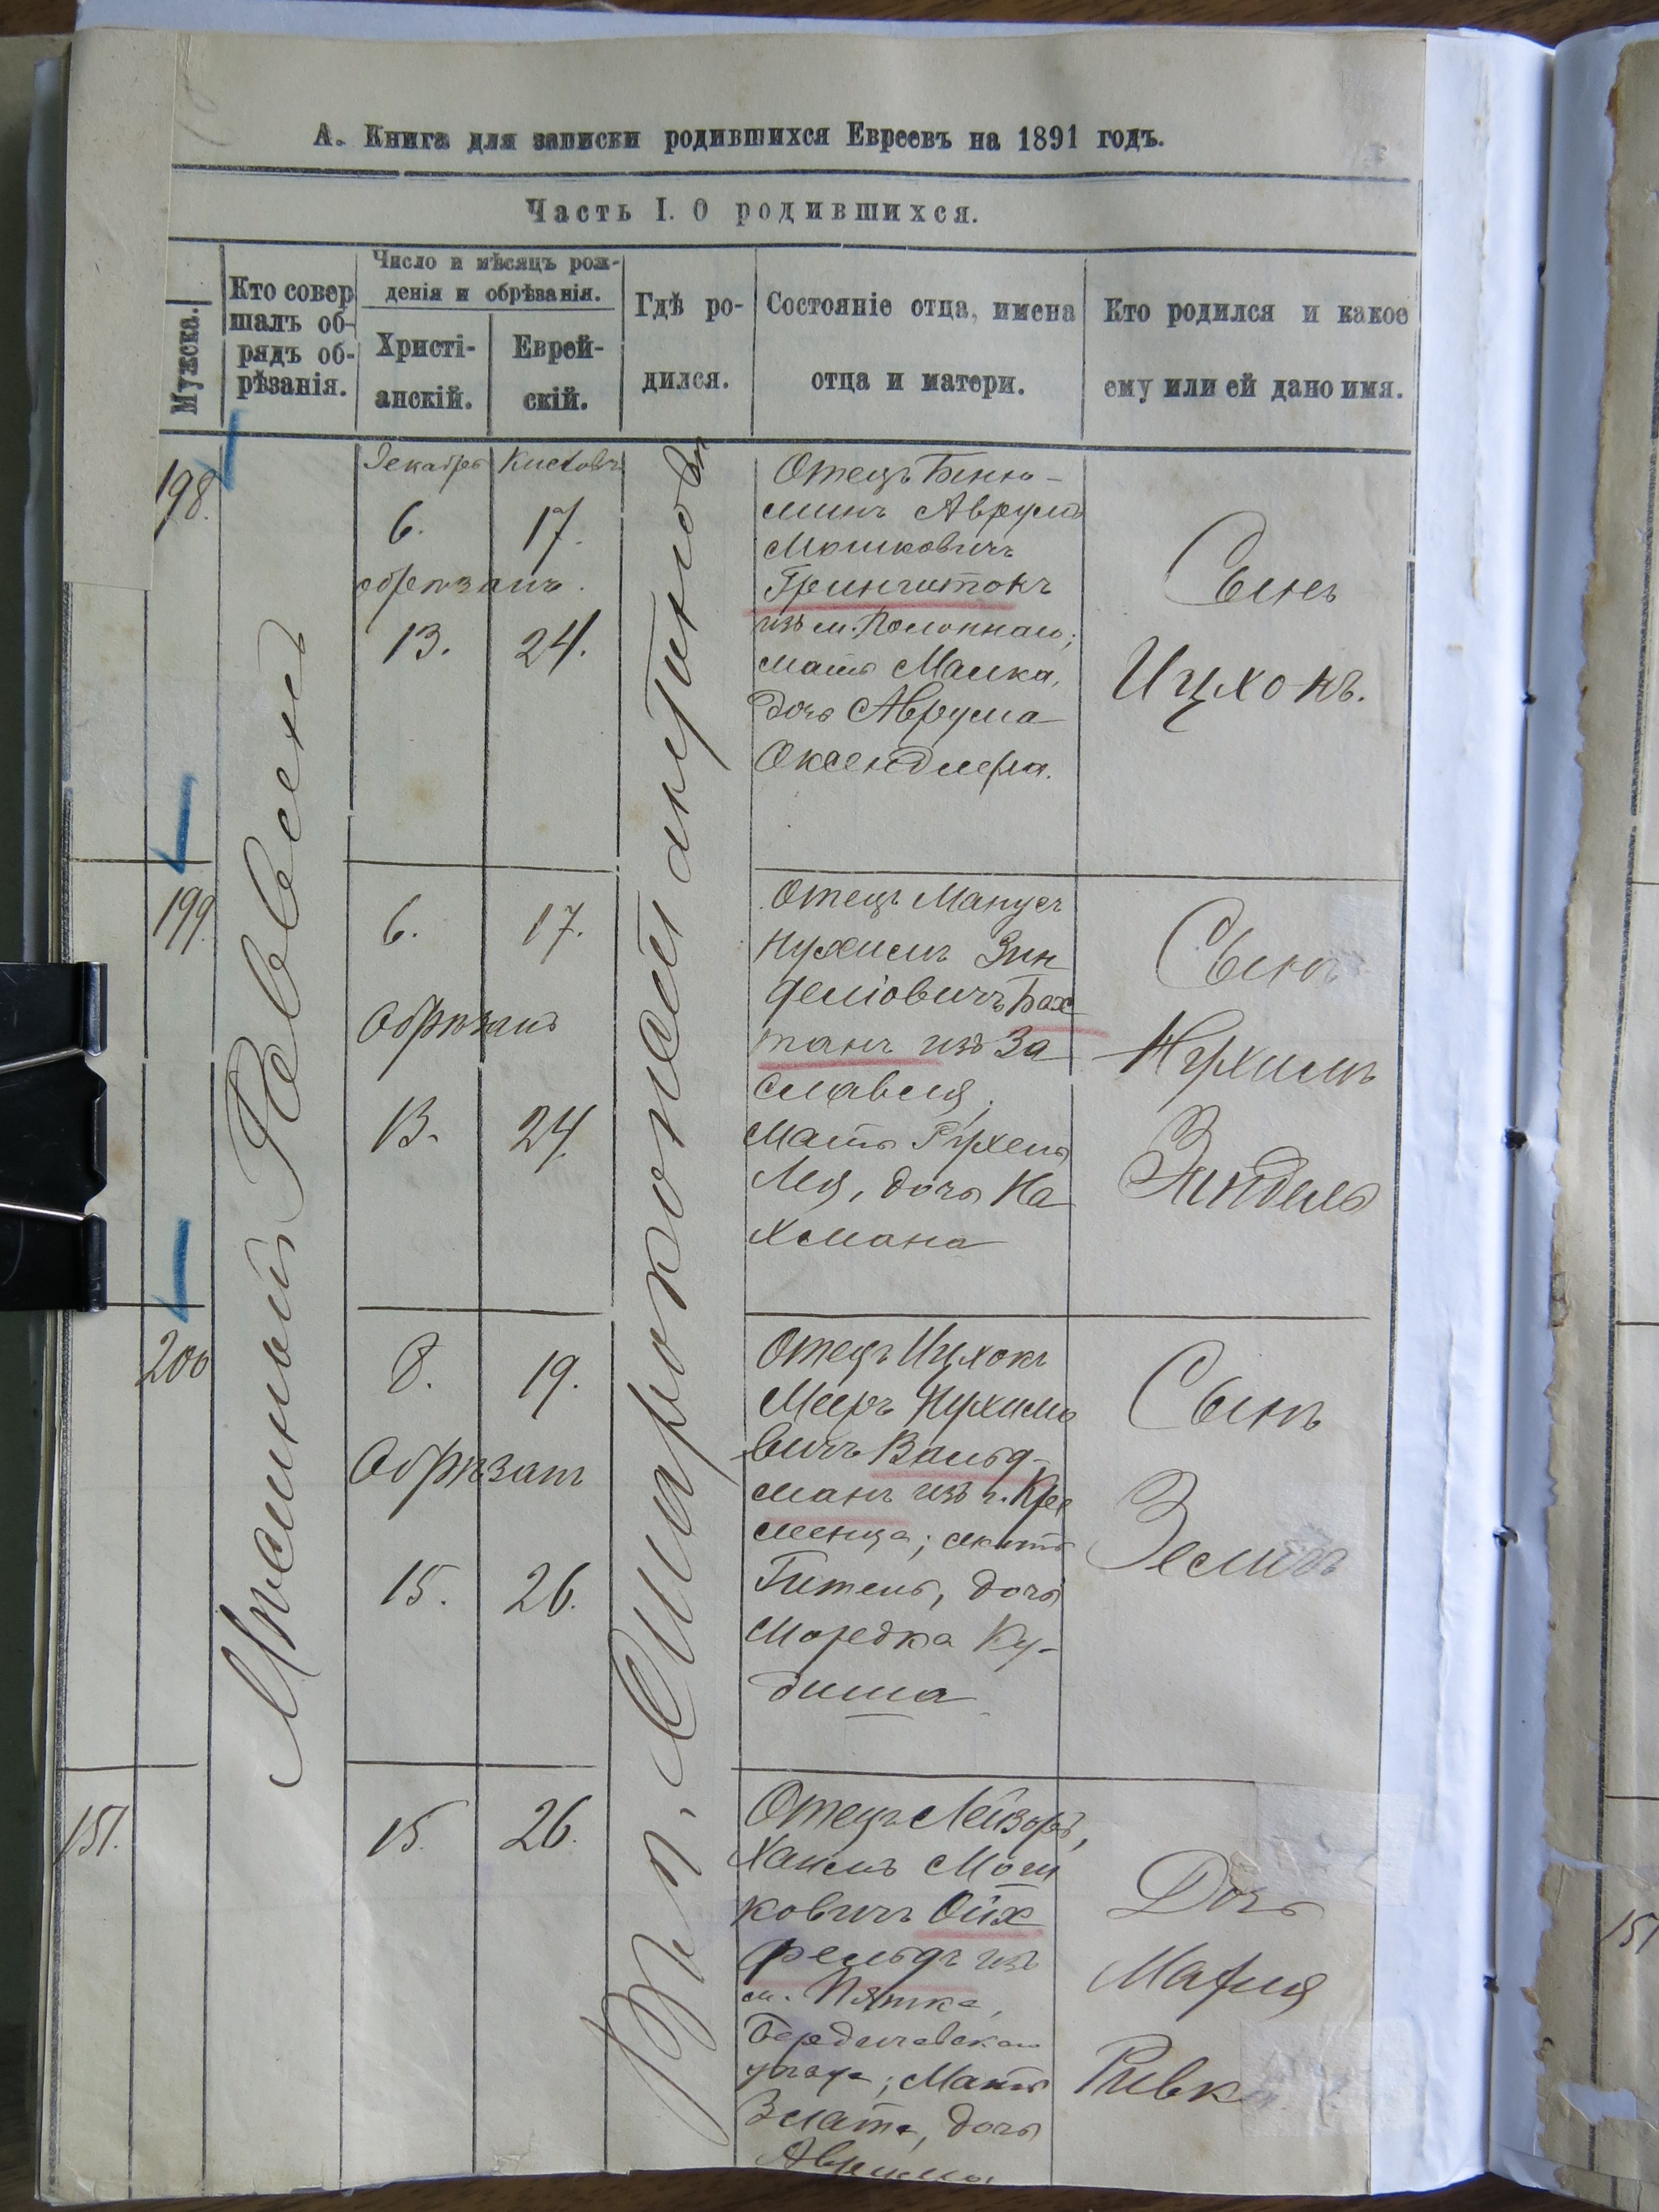 А. Книга для записки родившихся Евреевъ на 1891 годъ.
Часть I. О родившихся.
Мужска.
Кто совер
шалъ об-
рядъ об-
рѣзанія.
Число и мѣсяцъ рож-
денія и обрѣзанія.
Христі-
анскій.
Еврей-
скій.
Гдѣ ро-
дился.
Состояніе отца, имена
отца и матери.
Кто родился и какое
ему или ей дано имя.
Мѣстный Раввенъ
Въ г. Староконстантинов
198.
Декабрь
Кислевъ
6.
17.
обрѣзанъ.
13.
24.
Отецъ Беню-
минъ Аврумъ
Мошковичъ
Гринштокъ
изъ м. Полоннаго;
мать Малка,
дочь Аврума
Оксендлера.
Сынъ
Ицхокъ.
199.
6.
17.
Обрѣзанъ
13.
24.
Отецъ Манусъ
Нухимъ Зин
деліовичъ Бах
манъ изъ За
славля,
Мать Рухель
Лея, дочь На
хмана
Сынъ
Нухимъ
Зиндель
200
8.
19.
Обрѣзанъ
15.
26.
Отецъ Ицхокъ
Мееръ Нухимо
вичъ Вальд-
манъ изъ г. Кре
менца; мать
Гитель, дочь
Мордка Ку-
диша
Сынъ
Зелигъ
151.
15.
26.
Отецъ Лейзоръ,
Хаимъ Мош
ковичъ Ойх
фельдъ изъ
м. Пятка,
Бердичевскаго
уѣзда; Мать
Злата, дочь
Аврума
Дочь
Марія
Ривка
151